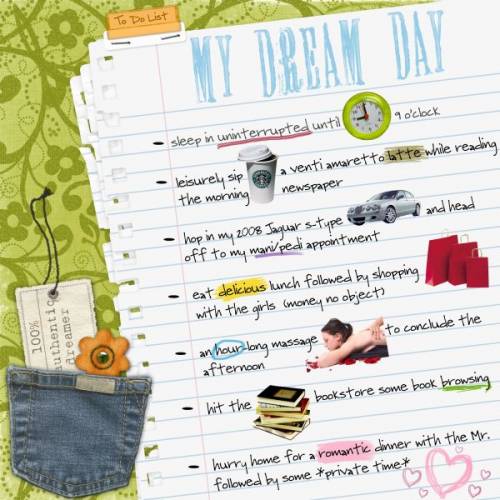 To Do List
MY DREAM DAY
- sleep in uninterrupted until 9 o'clock
- leisurely sip a venti amaretto latte while reading
the morning newspaper
- hop in my 2008 Jaguar s-type and head
off to my mani/pedi appointment
- eat delicious lunch followed by shopping
with the girls (money no object)
- an hour-long massage to conclude the
afternoon
- hit the bookstore some book browsing
- hurry home for a romantic dinner with the Mr.
followed by some *private time*
100%
authentic
dreamer